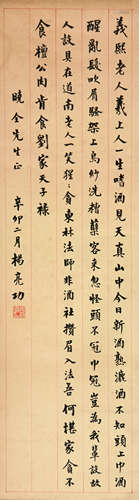 義熙老人羲上人一生嗜酒見天真山中今日新酒熟漉酒不知頭上巾
醒亂髮吹眉騷架上烏紗洗糟蘖客來忽怪頭不冠巾冠豈為我輩設故
人設具在道南老人一笑猩〻貪東林法師非酒社攢眉入法吾何堪家貪不
食檀公肉肯食劉家天子祿
曉全先生正
辛卯二月楊亮功